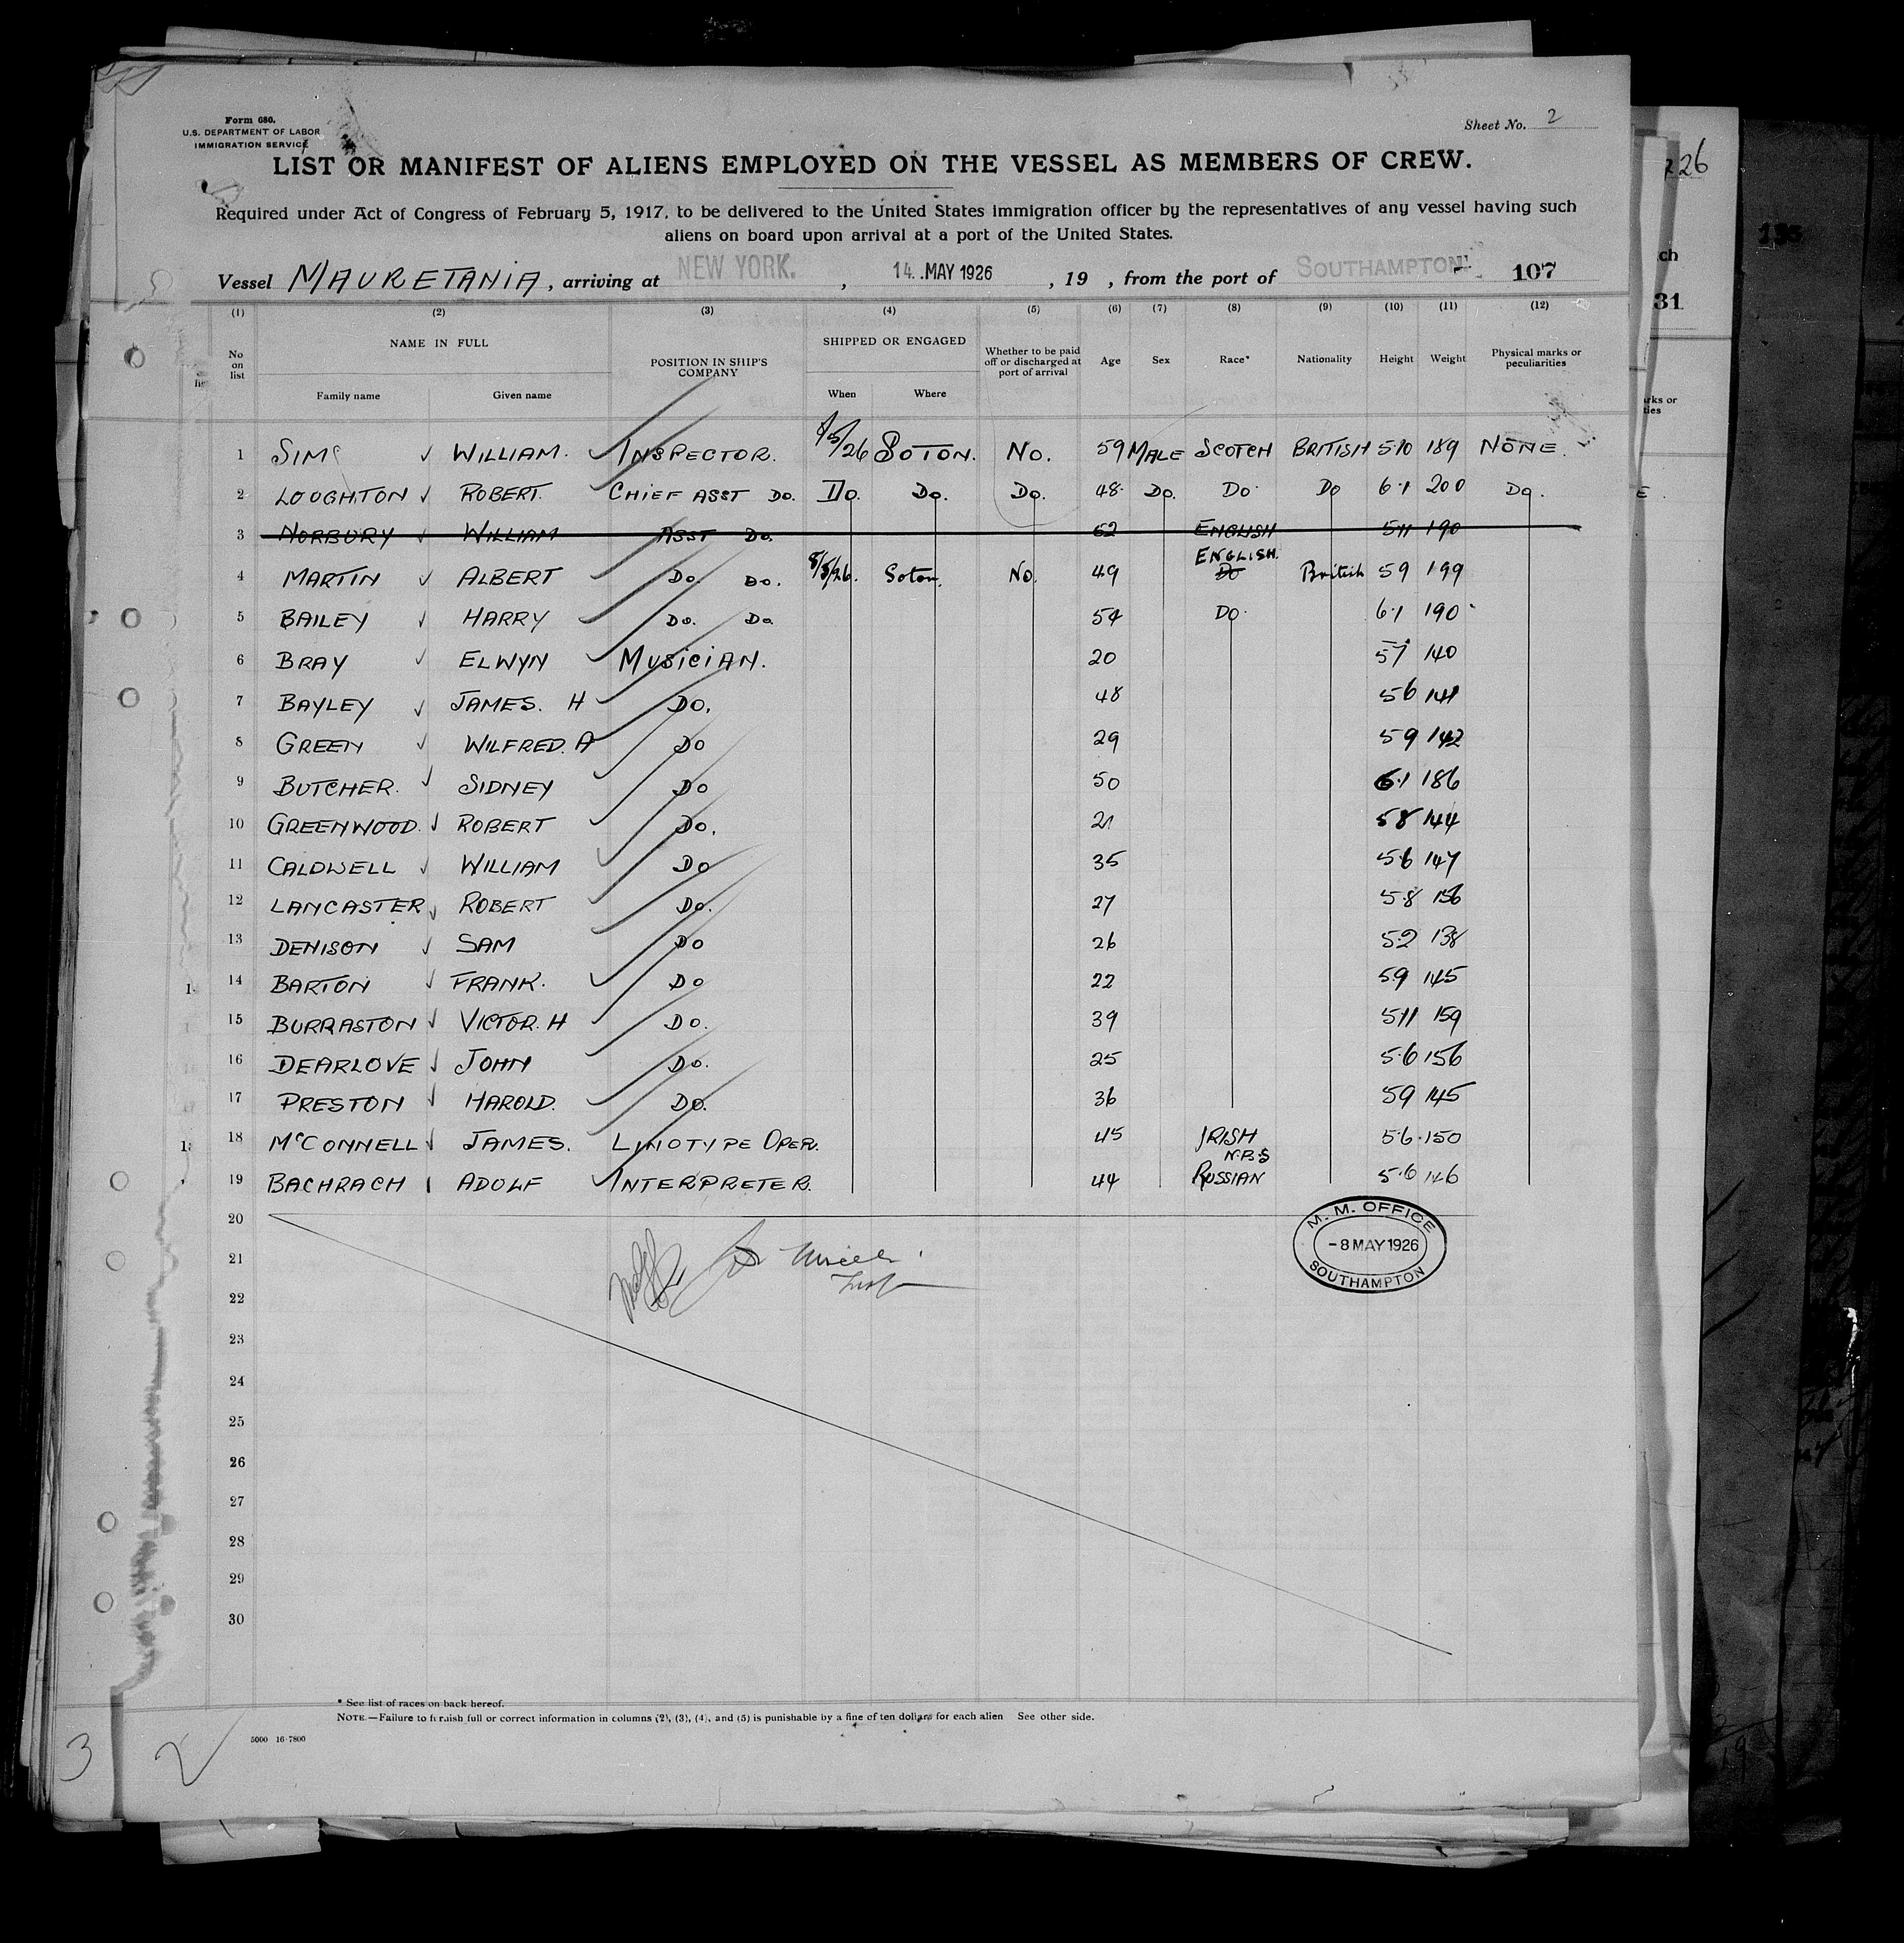 Form 680.
U.S. DEPARTMENT OF LABOR
IMMIGRATION SERVICE
Sheet No. 2
LIST OR MANIFEST OF ALIENS EMPLOYED ON THE VESSEL AS MEMBERS OF CREW.
Required under Act of Congress of February 5, 1917, to be delivered to the United States immigration officer by the representatives of any vessel having such
aliens on board upon arrival at a port of the United States.
Vessel MAURETANIA, arriving at NEW YORK. , 14 MAY 1926 , 19 , from the port of SOUTHAMPTON 107
(1) (2) (3) (4) (5) (6) (7) (8) (9) (10) (11) (12)
No on list NAME IN FULL Family name Given name POSITION IN SHIP'S COMPANY SHIPPED OR ENGAGED When Where Whether to be paid off or discharged at port of arrival Age Sex Race* Nationality Height Weight Physical marks or peculiarities
1 SIMS WILLIAM. INSPECTOR. 8/5/26 SOTON. NO. 59 MALE SCOTCH BRITISH 5·10 189 NONE.
2 LOUGHTON ROBERT. CHIEF ASST DO. DO. DO. DO. 48 DO. DO DO 6·1 200 DO.
3 NORBURY WILLIAM ASST DO. 52 ENGLISH 5·11 190
4 MARTIN ALBERT DO. DO. 8/5/26. Soton. No. 49 DO ENGLISH. British 5 9 199
5 BAILEY HARRY DO. DO 54 DO. 6·1 190
6 BRAY ELWYN MUSICIAN. 20 5 7 140
7 BAYLEY JAMES. H DO. 48 5 6 141
8 GREEN WILFRED. A DO 29 5 9 142
9 BUTCHER. SIDNEY DO 50 6·1 186
10 GREENWOOD. ROBERT DO. 21 5 8 144
11 CALDWELL WILLIAM DO 35 5·6 147
12 LANCASTER ROBERT DO. 27 5·8 156
13 DENISON SAM DO 26 5·2 138
14 BARTON FRANK. DO 22 5·9 145
15 BURRASTON VICTOR. H DO. 39 5·11 159
16 DEARLOVE JOHN DO. 25 5·6 156
17 PRESTON HAROLD. DO. 36 5 9 145
18 McCONNELL JAMES. LINOTYPE OPER. 45 IRISH 5·6 150
19 BACHRACH ADOLF INTERPRETER. 44 N.B.S RUSSIAN 5·6 146
20
21
22
23
24
25
26
27
28
29
30
M. M. OFFICE
- 8 MAY 1926
SOUTHAMPTON
* See list of races on back hereof.
NOTE.—Failure to furnish full or correct information in columns (2), (3), (4), and (5) is punishable by a fine of ten dollars for each alien See other side.
5000 16-7800
3 2
26
31